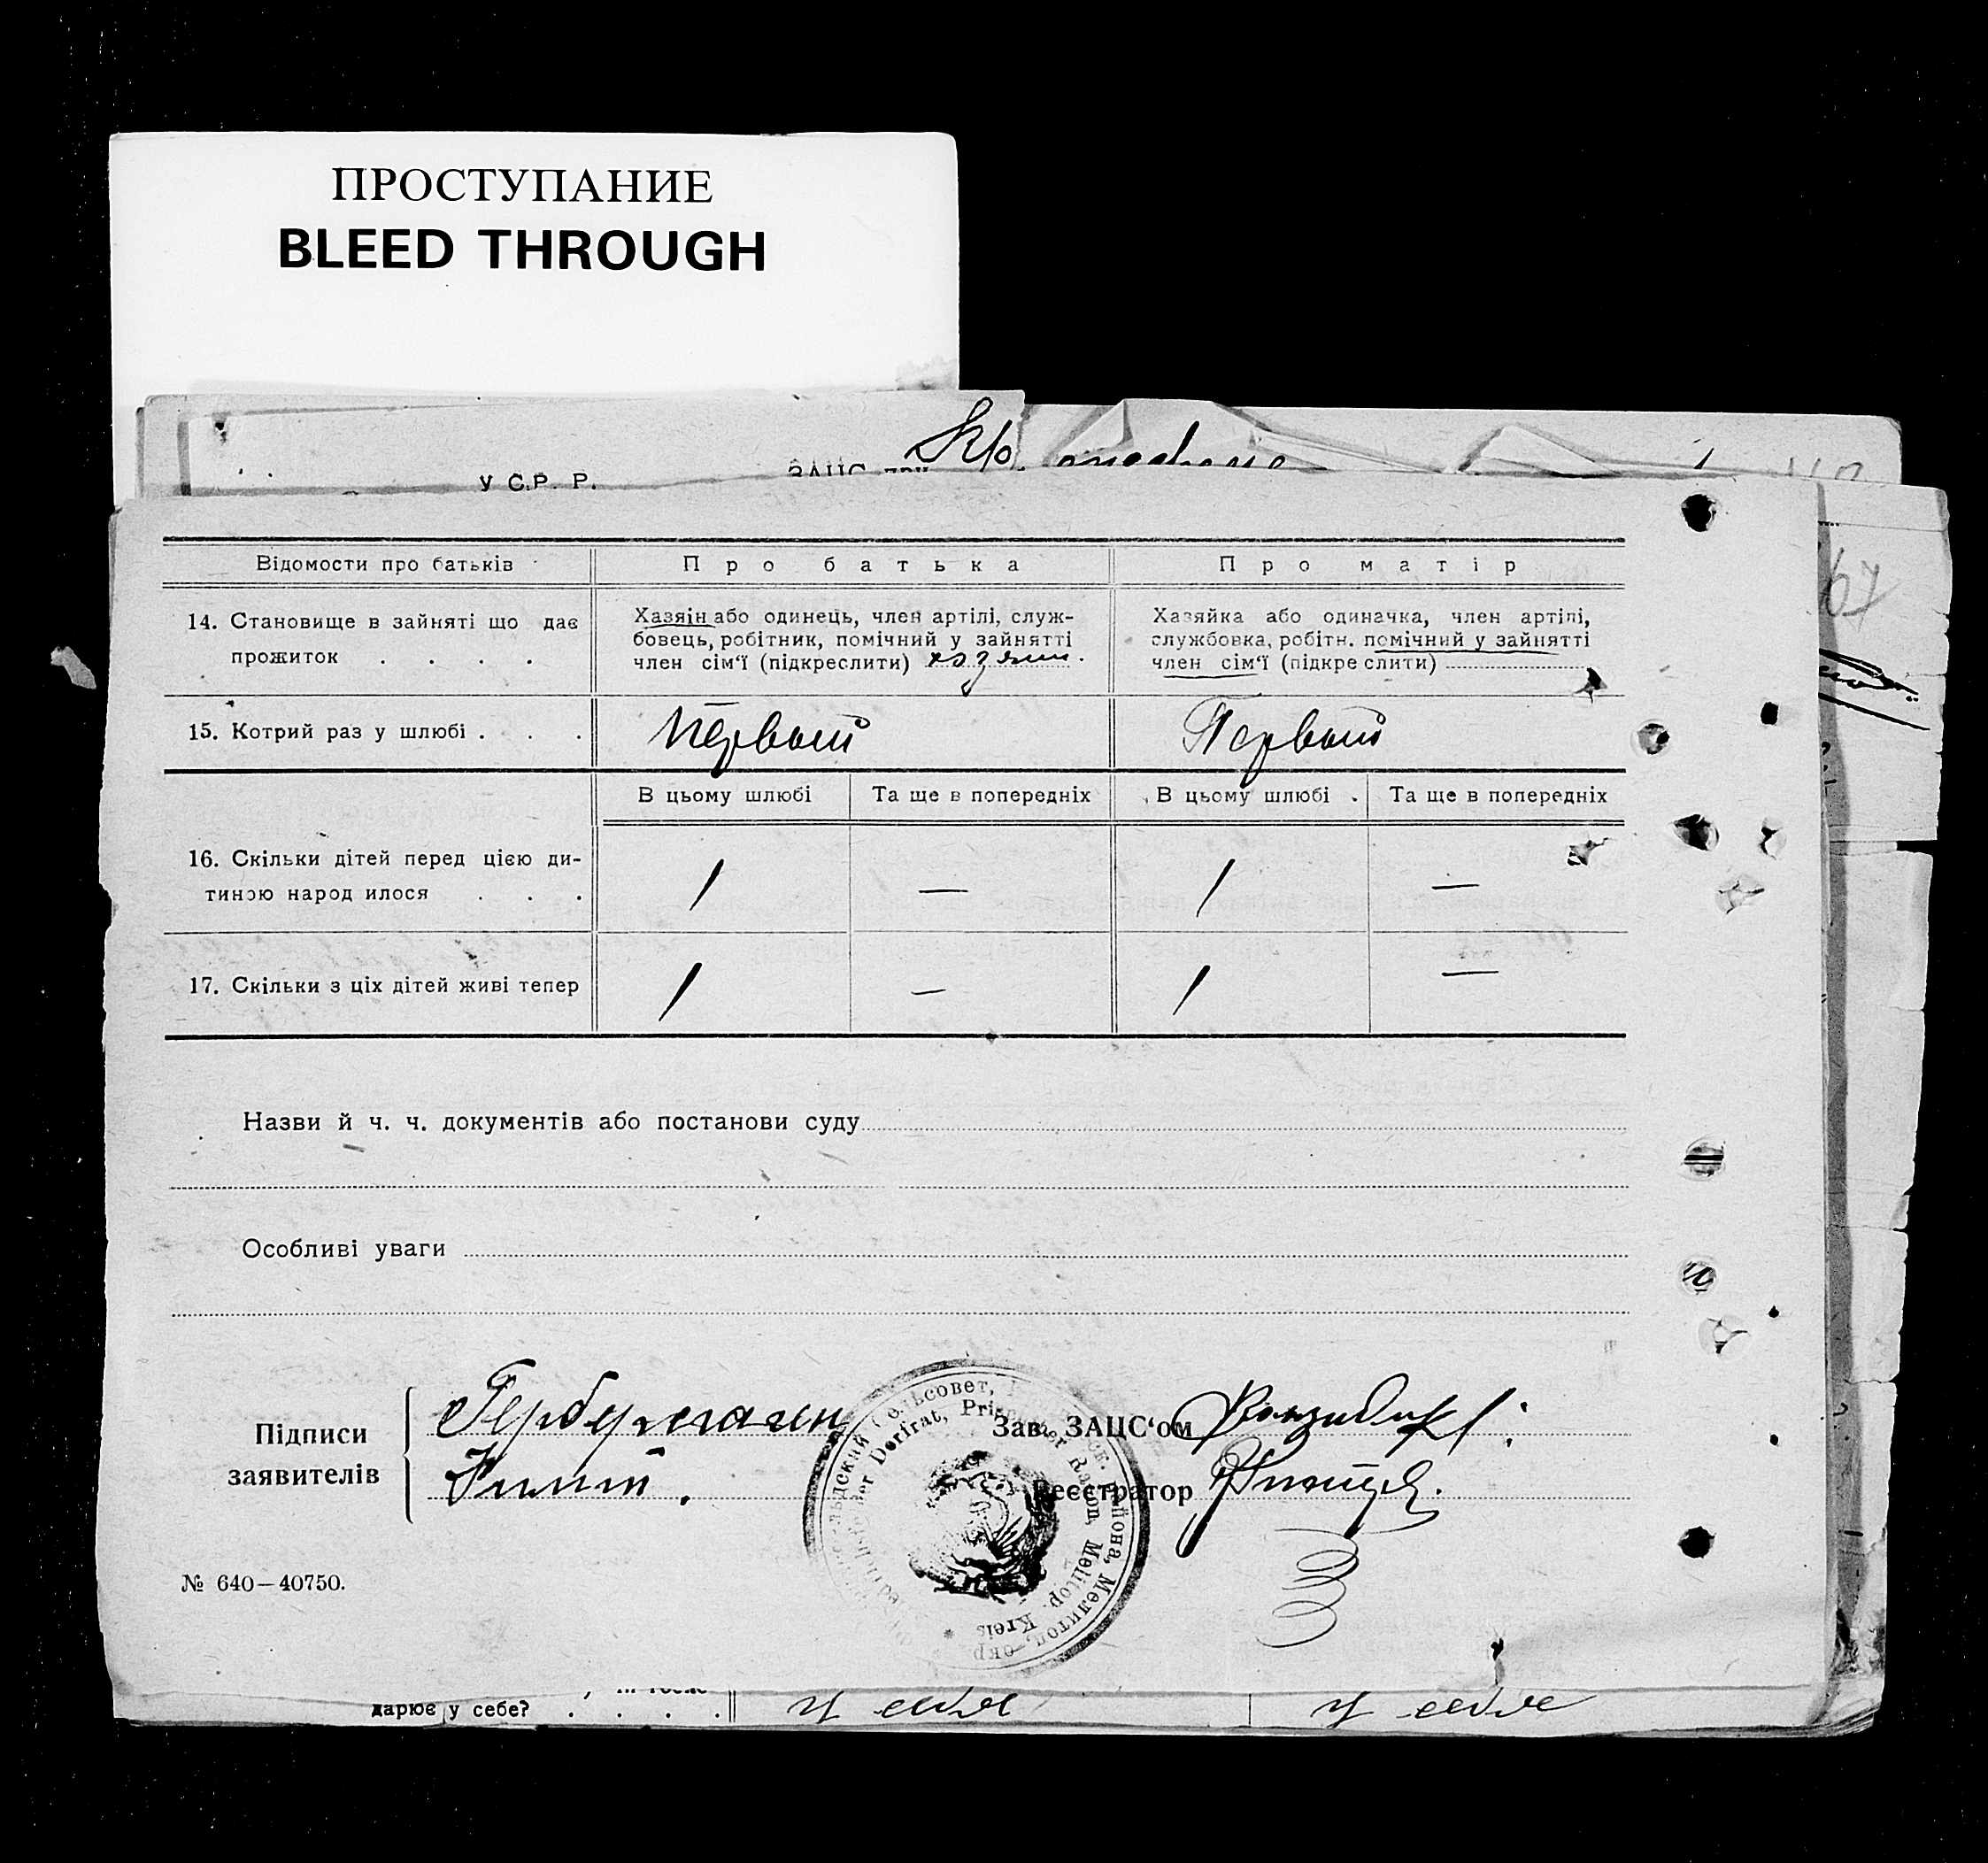 ПРОСТУПАНИЕ
BLEED THROUGH
У С.Р. Р.
Відомости про батьків
Про батька
Про матір
14. Становище в зайняті що дає
прожиток . . . .
Хазяін або одинець, член артілі, служ-
бовець, робітник, помічний у зайнятті
член сім'ї (підкреслити) хозяин.
Хазяйка або одиначка, член артілі,
службовка, робітн. помічний у зайнятті
член сім'ї (підкре слити)
15. Котрий раз у шлюбі . . .
Первый
Первый
В цьому шлюбі
Та ще в попередніх
В цьому шлюбі
Та ще в попередніх
16. Скільки дітей перед цією ди-
тиною народ илося . . .
1
—
1
—
17. Скільки з ціх дітей живі тепер
1
—
1
—
Назви й ч. ч. документів або постанови суду
Особливі уваги
Підписи
заявителів
Зав. ЗАЦС'ом
Реєстратор
сельсовет, района, Мелитоп. окр.
er Dorfrat, Rayon, Melitop. Kreis
№ 640—40750.
дарює у себе? . . . .
у себя
у себя